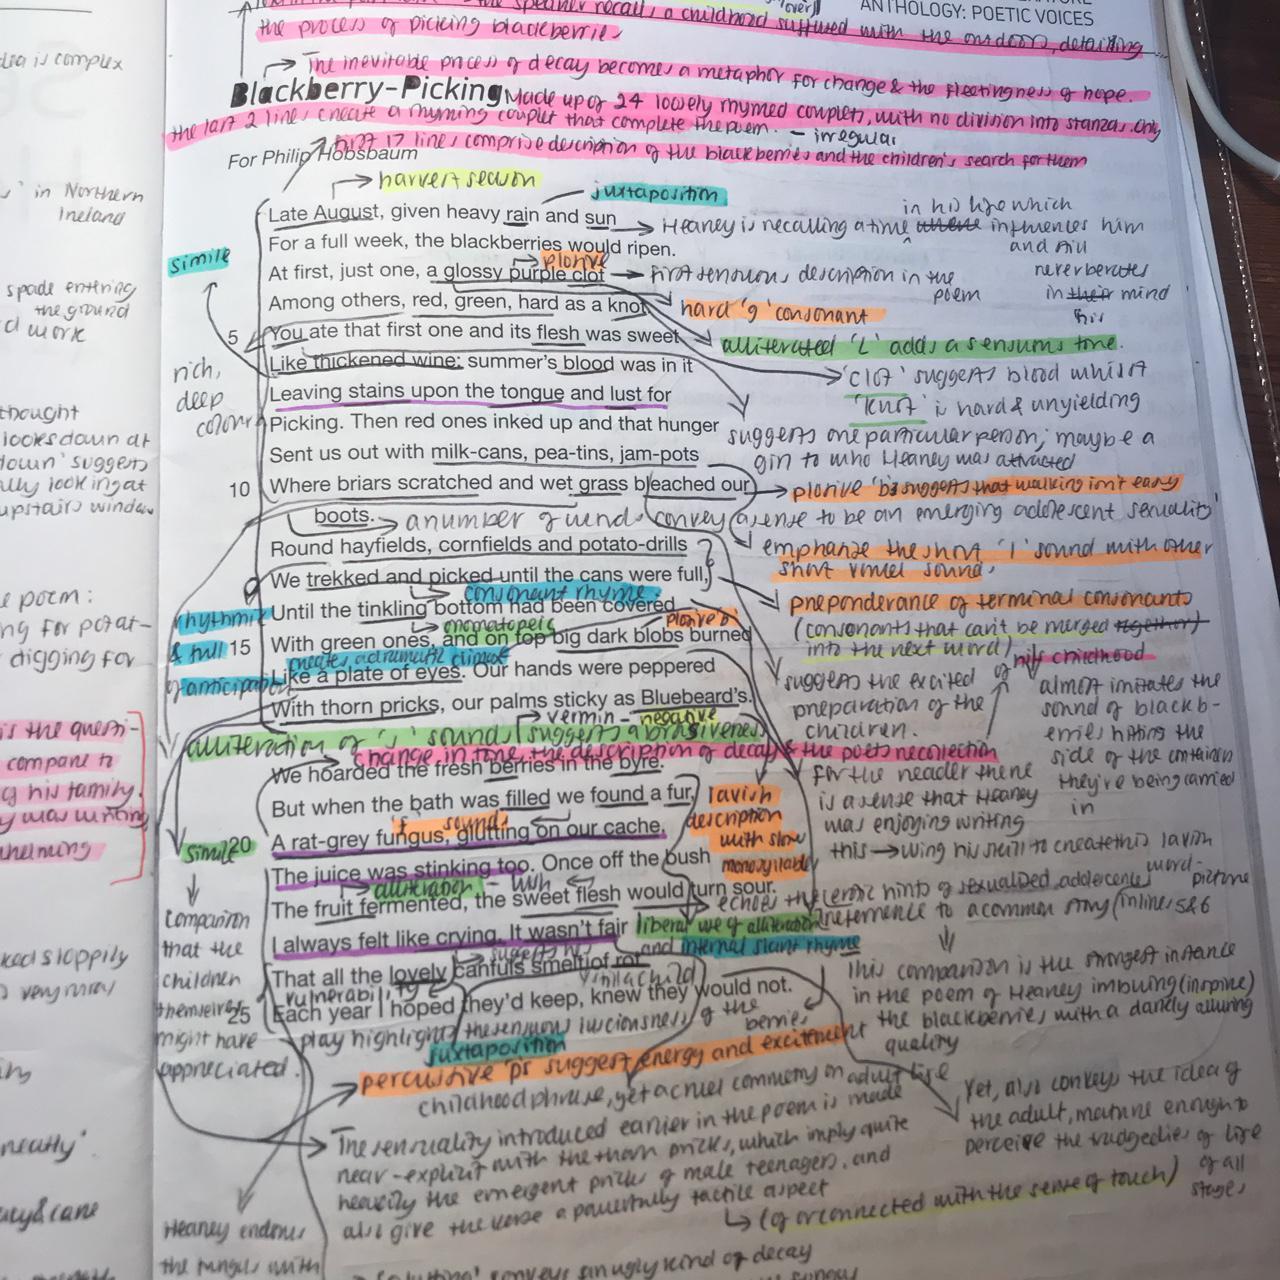 the speaker recalls a childhood suffused with the outdoors, detailing
ANTHOLOGY: POETIC VOICES
the process of picking blackberries
dea is complex
The inevitable process of decay becomes a metaphor for change & the fleetingness of hope.
Blackberry-Picking
Made up of 24 loosely rhymed couplets, with no division into stanzas. only
the last 2 lines create a rhyming couplet that complete the poem. - irregular
first 17 lines comprise description of the blackberries and the children's search for them
For Philip Hobsbaum
harvest season
juxtaposition
s' in Northern
Ireland
Late August, given heavy rain and sun
Heaney is recalling a time in his life which influences him
and will
never berates
in his mind
For a full week, the blackberries would ripen.
simile
plosive
At first, just one, a glossy purple clot
first sensuous description in the
poem
Among others, red, green, hard as a knot
hard 'g' consonant
spade entering
the ground
d work
5
You ate that first one and its flesh was sweet
alliterated 'L' adds a sensuous tone.
Like thickened wine: summer's blood was in it
'clot' suggests blood whilst
'knot' is hard & unyielding
rich,
deep
colour
Leaving stains upon the tongue and lust for
Picking. Then red ones inked up and that hunger
suggests one particular person; maybe a
girl to who Heaney was attracted
thought
looks down at
down' suggests
ally looking at
upstairs window
Sent us out with milk-cans, pea-tins, jam-pots
10
Where briars scratched and wet grass bleached our
plosive 'b' suggests that walking isn't easy
boots.
a number of words convey a sense to be an emerging adolescent sexuality
Round hayfields, cornfields and potato-drills
emphasise the short 'i' sound with other
short vowel sound.
We trekked and picked until the cans were full,
consonant rhyme
preponderance of terminal consonants
(consonants that can't be merged together)
into the next word)
e poem:
ng for potat-
digging for
rhythmic
& full
of anticipation
Until the tinkling bottom had been covered
onomatopeic
plosive b
15
With green ones, and on top big dark blobs burned
creates a dramatic climax
Like a plate of eyes. Our hands were peppered
With thorn pricks, our palms sticky as Bluebeard's.
suggests the excited
preparation of the
children.
of his childhood
almost imitates the
sound of blackb-
erries hitting the
side of the container
they're being carried
in
vermin - negative
alliteration of 's' sound suggests abrasiveness
change in tone the description of decay & the poets recollection
is the questi-
compare to
g his family.
y was writing
We hoarded the fresh berries in the byre.
for the reader there
is a sense that Heaney
was enjoying writing
this
using his skill to create this lavish
word-
picture
But when the bath was filled we found a fur,
lavish
description
with slow
monosyllables
'f' sound
simile
20
A rat-grey fungus, glutting on our cache.
The juice was stinking too. Once off the bush
alliteration - lush
The fruit fermented, the sweet flesh would turn sour.
echoes the erotic hints of sexualised adolescence
reference to a common story (in lines 5 & 6
I always felt like crying. It wasn't fair
liberal use of alliteration
and internal slant rhyme
comparison
that the
children
themselves
might have
appreciated.
suggests his
That all the lovely canfuls smelt of rot.
vulnerability
child
25
Each year I hoped they'd keep, knew they would not.
This comparison is the strongest instance
in the poem of Heaney imbuing (inspire)
the blackberries with a darkly alluring
quality
play highlights the sensuous lusciousness of the
berries
juxtaposition
percussive 'p's suggest energy and excitement
childhood phrase, yet a cruel commentary on adult life
is made
Yet, also conveys the idea of
the adult, mature enough to
perceive the tradgedies of life
of all
stages
The sensuality introduced earlier in the poem is made
near-explicit with the thorn pricks, which imply quite
heavily the emergent pricks of male teenagers, and
also give the verse a powerfully tactile aspect
(of or connected with the sense of touch)
neatly'.
Heaney endows
the fungus with
conveys an ugly kind of decay